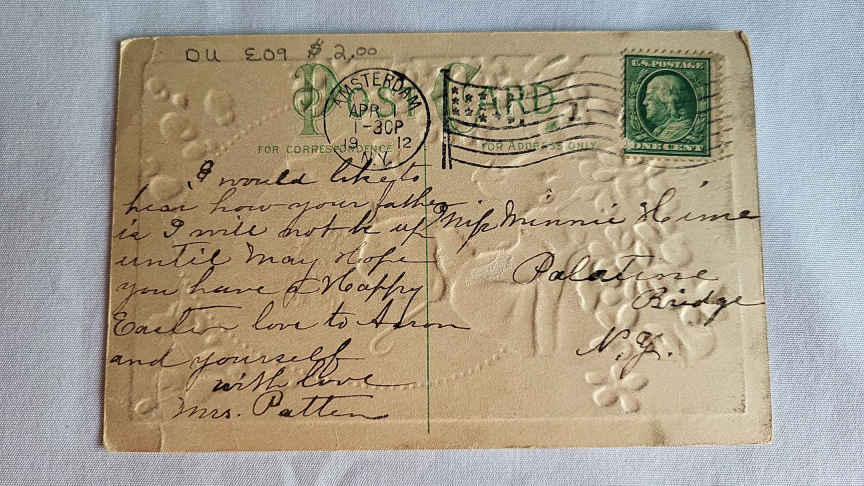 DU E09 $2.00
POST CARD
AMSTERDAM
APR 1
1-30P
19 12
N.Y.
1
U.S. POSTAGE
ONE CENT
FOR CORRESPONDENCE
FOR ADDRESS ONLY
I would like to
hear how your father
is I will not be up
until May Hope
you have a Happy
Easter love to Aaron
and yourself
with love
Mrs. Patten
Miss Minnie Hime
Palatine
Bridge
N.Y.